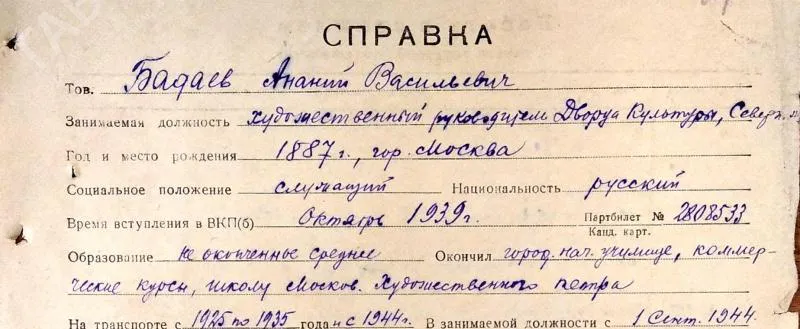 СПРАВКА
Тов. Бадаев Ананий Васильевич
Занимаемая должность художественный руководитель Дворца Культуры, Северн.
Год и место рождения 1887 г., гор. Москва
Социальное положение служащий Национальность русский
Время вступления в ВКП(б) Октябрь 1939 г. Партбилет № 2808533
Канд. карт.
Образование не оконченное среднее Окончил город. нач. училище, коммер-
ческие курсы, школу Москов. Художественного театра
На транспорте с 1925 по 1935 года и с 1944 г. В занимаемой должности с 1 Сент. 1944